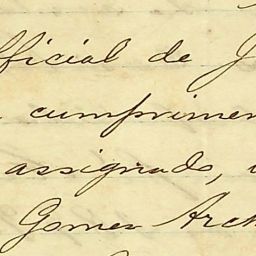 official de J
cumprimen
assignado,
Gomes Arch